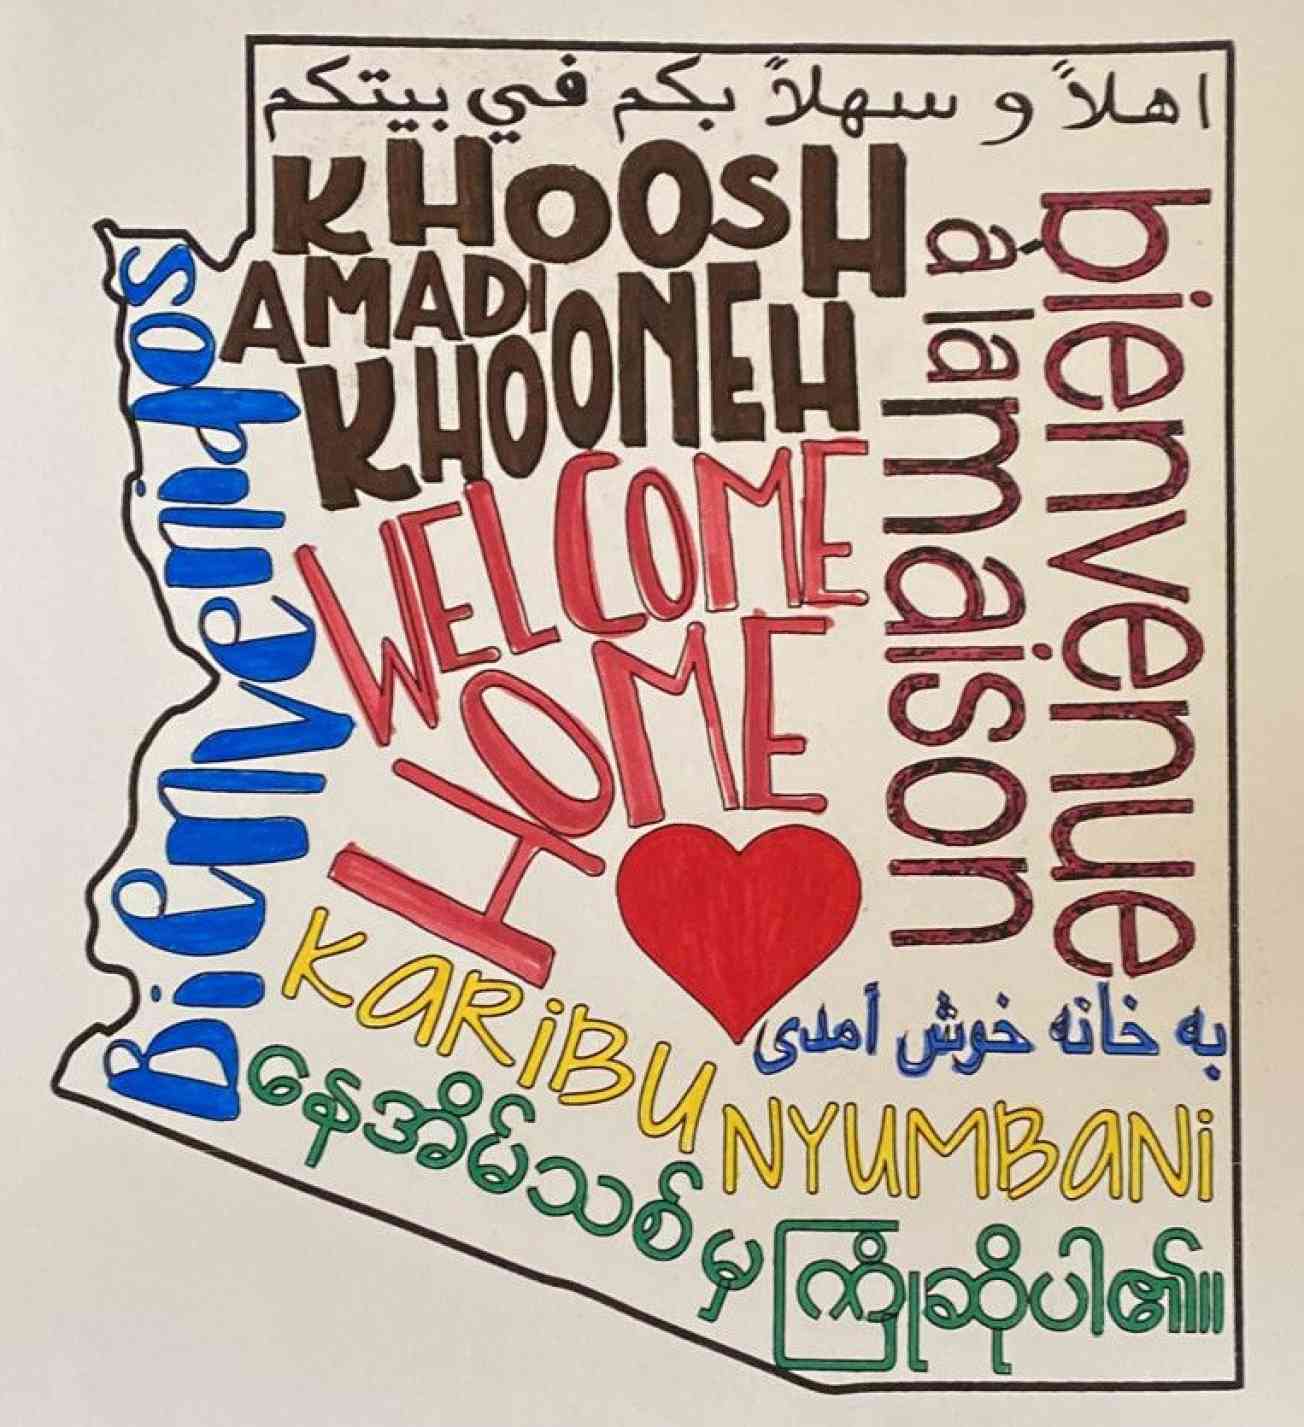 اهلاً و سهلاً بكم في بيتكم
KHOOSH
AMADI
KHOONEH
WELCOME
HOME
bienvenue
à la maison
Bienvenidos
به خانه خوش آمدی
KARIBU
NYUMBANI
နေအိမ်သစ်မှ
ကြိုဆိုပါ၏။